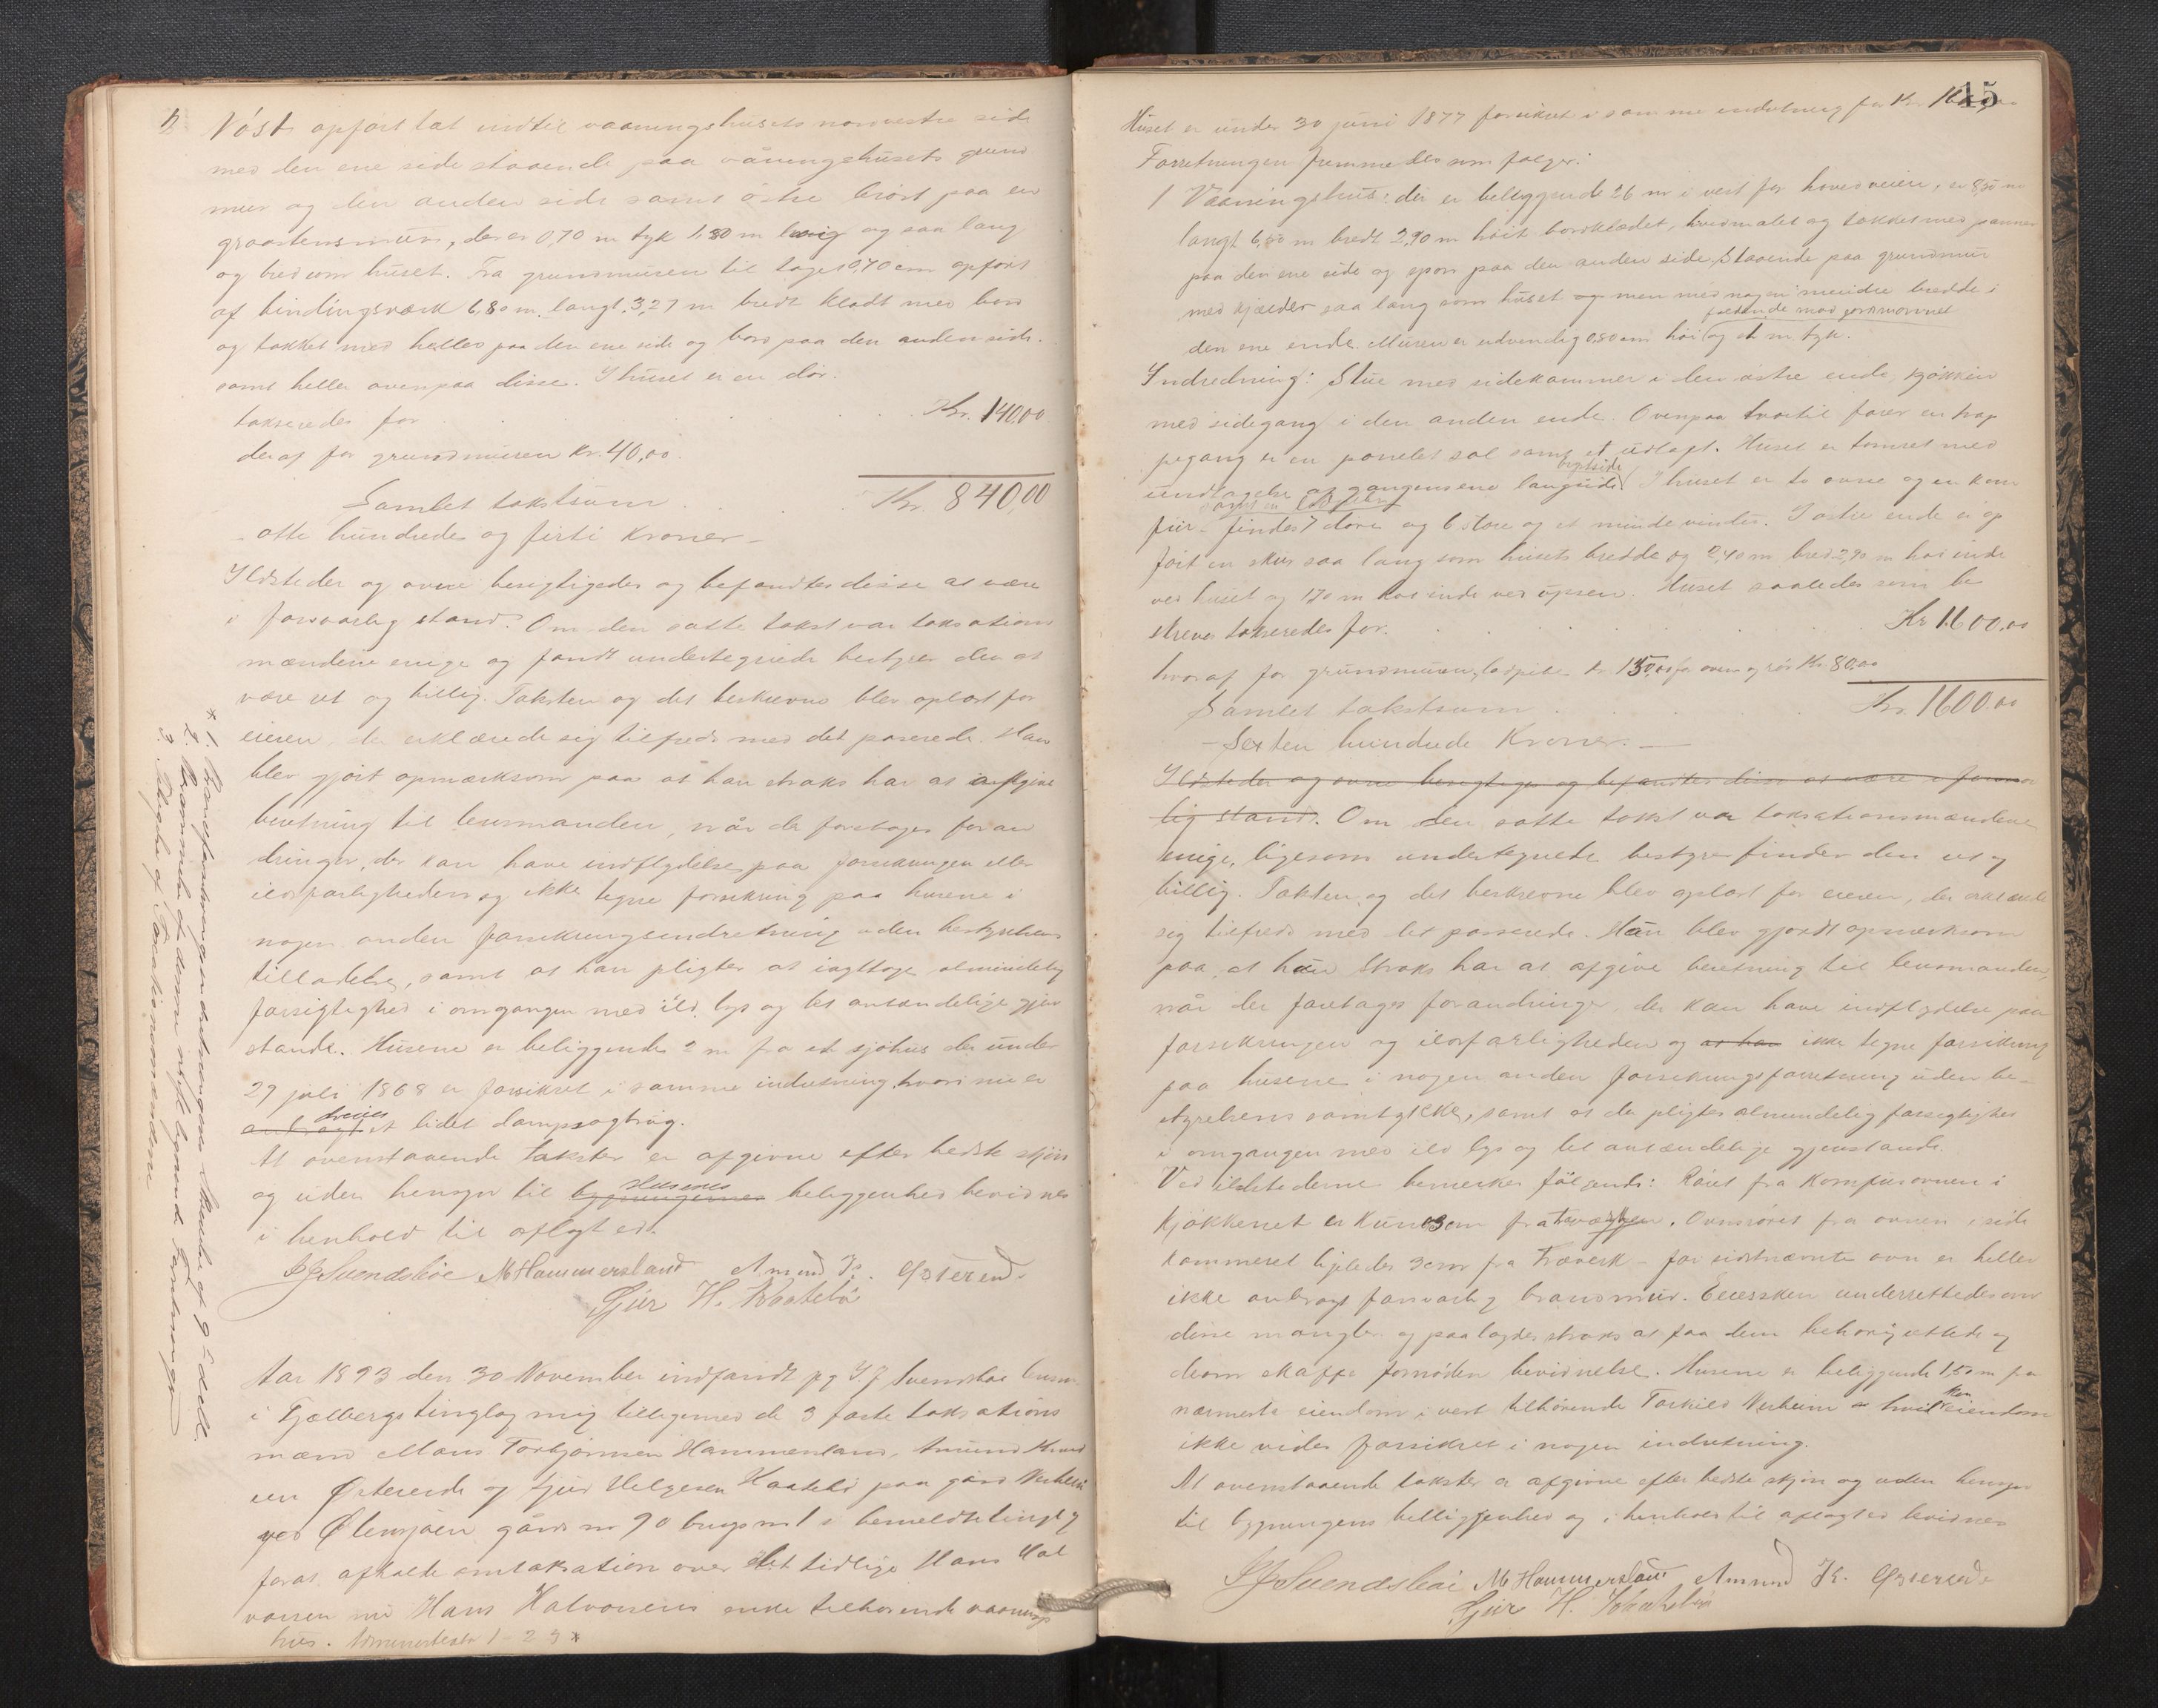 2 Nöst opfört tæt indtil vaaningshusets nordvestre side
med den ene side staaende paa våningshusets grund
mur og den anden side samt östre bröst paa en
graastensmur, der er 0,70 m tyk 1,80 m höi og saa lang
og bred som huset. Fra grundmuren til taget 0,70 cm opfört
af bindingsværk 6,80 m. langt. 3,27 m bredt klædt med bord
og tækket med heller paa den ene side og bord paa den anden side.
samt heller ovenpaa disse. I huset er en dör.
takseredes for Kr. 140,00
deraf for grundmuren Kr. 40,00.
Samlet takstsum Kr. 840,00
- otte hundrede og firti Kroner -
Ildsteder og ovne besigtigedes og befandtes disse at være
i forsvarlig stand. Om den satte takst var taksations
mændene enige og fandt undertegnede bestyrer den at
være ret og billig. Taksten og det beskrevne blev oplæst for
eieren der erklærede sig tilfreds med det passerede. Han
blev gjort opmærksom paa at han straks har at afgive
beretning til lensmanden, når der foretages foran
dringer, der kan have indflydelse paa forsikringen eller
ildsfarligheden og ikke tegne forsikring paa husene i
nogen anden forsikringsindretning uden bestyrelsens
tilladelse, samt at han pligter at iagttage almindelig
forsigtighed i omgangen med ild, lys og let antændelige gjen
stande. Husene er beliggende 2 m fra et sjöhus der under
29 juli 1868 er forsikret i samme indretning, hvori nu er
drives
et lidet dampsagbrug.
At ovenstaaende takster er afgivne efter bedste skjön
Husenes
og uden hensyn til bygningernes beliggenhed bevidnes
i henhold til aflagt ed.
J J Svendsböe M Hammersland Amund K. Østerend
Gjur H. Kaatabö
Aar 1893 den 30 November indfandt jeg J. J Svendsböe lensm.
i Fjælbergs tinglag mig tilligemed de 3 faste taksations
mænd Mons Torbjörnsen Hammersland, Amund Knud
sen Østerende og Gjur Helgesen Kaatabö paa gård
ved Ølensjöen gårds no 90 brugs no 1 i bemeldte tinglag
forat afholde omtaksation over det tidlige Hans Hal
vorsen nu Hans Halvorsens enke tilhörende vaanings
hus. 1 - 2 3 *
* 1. Brandforsikringsindretningens Skrivelse af 9 d.
2.
3. af Taxationsmændene
15
Huset er under 30 juni 1877 forsikret i samme indretning for Kr.
Forretningen fremmedes som fölger:
1 Vaaningshus: der er beliggende 26 m i vest for hovedveien, er 8,50 m
langt 6,80 m bredt 2,90 m höit bordklædet, hvidmalet og tækket med panner
paa den ene side og spon paa den anden side, Staaende paa grundmur
med kjælder saa lang som huset men med nogen mindre bredde i
den ene ende. Muren er udvendig 0,80 cm höi og et m. tyk.
Indredning: Stue med sidekammer i den östre ende, kjökken
med sidegang i den anden ende. Ovenpaa hvortil förer en trap
pegang er en panelet sal samt et udloft. Huset er tömret med
undtagelse af gangens ene langside. I huset er to ovne og en kom
fur. findes 7 döre og 6 store og et mindre vindu. I östre ende er op
fört en skur saa lang som husets bredde og 2,40 m bred 2,90 m höi inde
ved huset og 1,70 m höi inde ved upsen. Huset saaledes som be
skrevet takseredes for. Kr 1600,00
hvoraf for grundmuren, ladpibe Kr. 150,00 for ovn og rör Kr. 80,00
Samlet takstsum Kr. 1600,00
- Sexten hundrede Kroner. -
Ildsteder og ovne besigtiges og befandtes disse at være i forsvar
lig stand. Om den satte takst var taksationsmændene
enige, ligesom undertegnede bestyrer finder den ret og
billig. Taksten og det beskrevne blev oplæst for eieren, der erklærede
sig tilfreds med det passerede. Han blev gjordt opmerksom
paa, at han straks har at afgive beretning til lensmanden,
når der foretages forandringer, der kan have indflydelse paa
forsikringen og ildsfarligheden og at han ikke tegne forsikring
paa husene i nogen anden forsikringsforretning uden be-
styrelsens samtykke, samt at de pligter almindelig forsigtighed
i omgangen med ild lys og let antændelige gjenstande.
Ved ildstederne bemerkes fölgende: Röret fra komfurovnen i
kjökkenet er kun 3 cm fra træværk. Ovnsröret fra ovnen i side
kammeret ligeledes 3 cm fra træværk - for sidstnævnte ovn er heller
ikke anbragt forsvarlig brandmur. Eiersken underrettedes om
disse mangler og paalagdes straks at faa dem behörig rettede og
derom skaffe fornöden bevidnelse. Husene er beliggende 1,50 m fra
nærmeste eiendom i vest tilhörende Torkild hvilken eiendom
ikke vides forsikret i nogen indretning.
At ovenstaaende takster er afgivne efter bedste skjön og uden hensyn
til bygningens beliggenhed og i henhold til aflagt ed bevidnes
J J Svendsböe M Hammersland Amund K. Østerende
Gjur H. Kaatabö